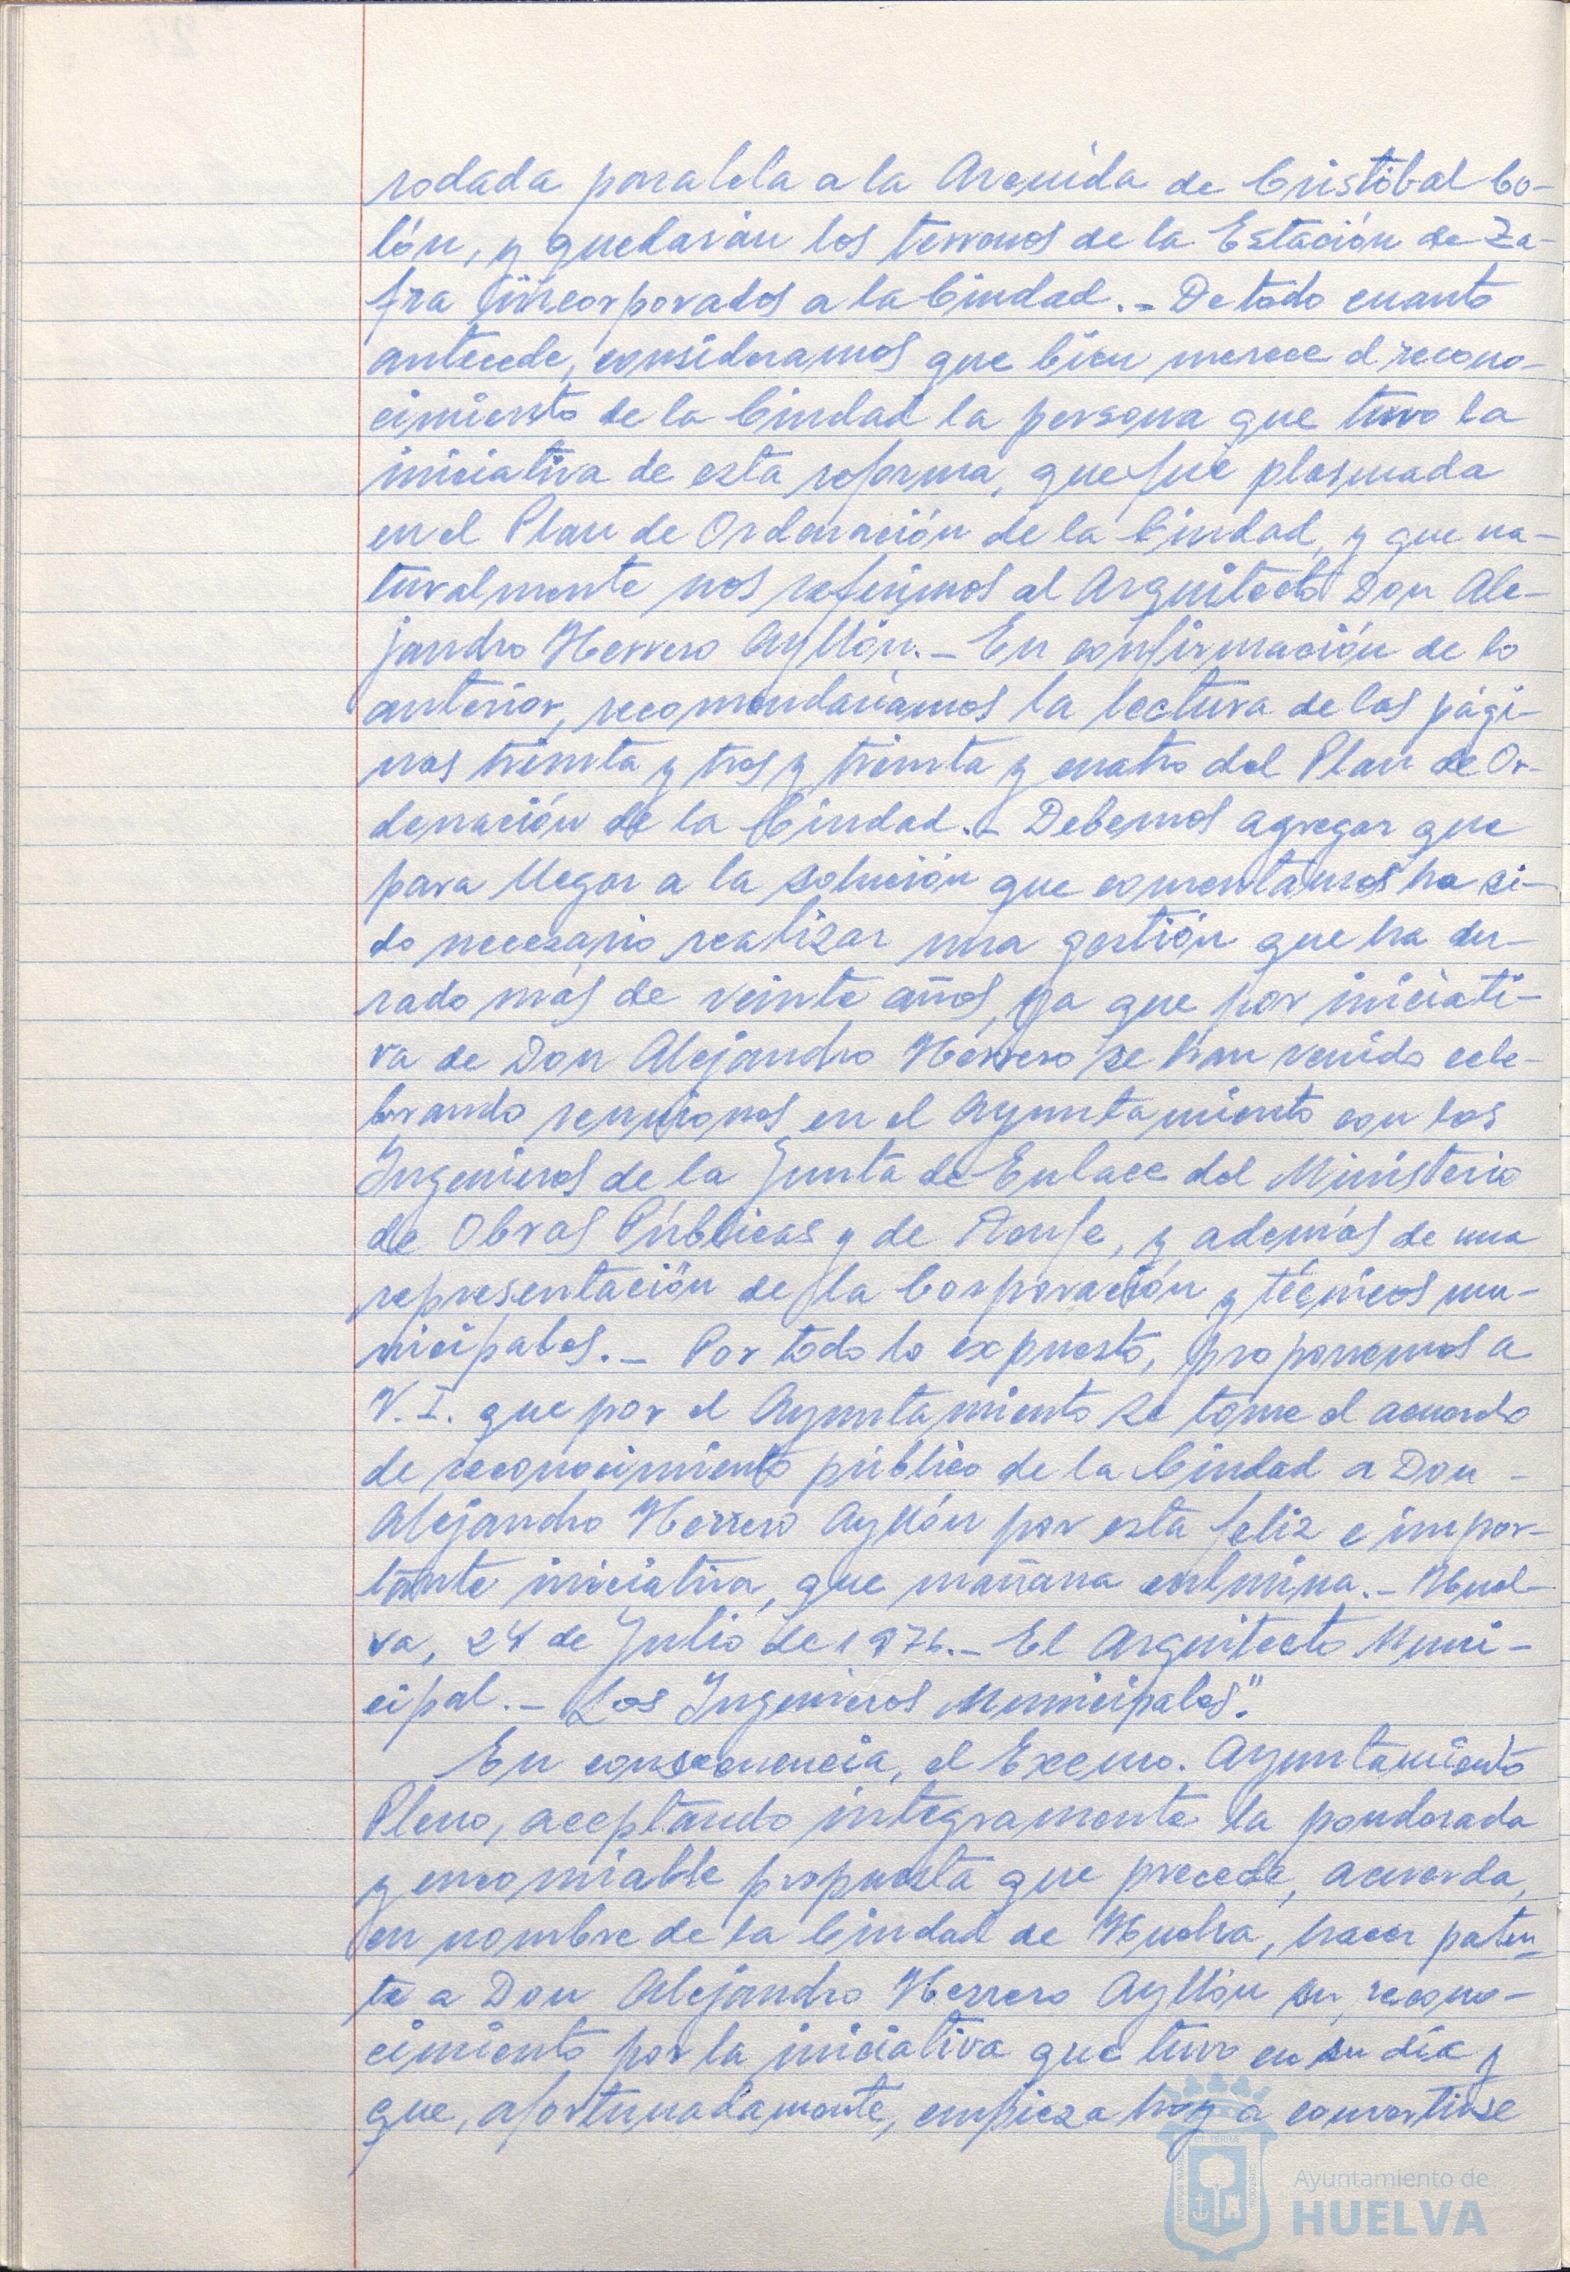 rodada paralela a la Avenida de Cristóbal Co-
lón, y quedarán los terrenos de la Estación de Za-
fra incorporados a la Ciudad.- De todo cuanto
antecede, consideramos que bien merece el recono-
cimiento de la Ciudad la persona que tuvo la
iniciativa de esta reforma, que fué plasmada
en el Plan de Ordenación de la Ciudad, y que na-
turalmente nos referimos al Arquitecto Don Ale-
jandro Herrero Ayllón.- En confirmación de lo
anterior, recomendaríamos la lectura de las pági-
nas treinta y tres y treinta y cuatro del Plan de Or-
denación de la Ciudad.- Debemos agregar que
para llegar a la solución que comentamos ha si-
do necesario realizar una gestión que ha du-
rado más de veinte años, ya que por iniciati-
va de Don Alejandro Herrero se han venido cele-
brando reuniones en el Ayuntamiento con los
Ingenieros de la Junta de Enlace del Ministerio
de Obras Públicas y de Renfe, y además de una
representación de la Corporación y técnicos mu-
nicipales.- Por todo lo expuesto, proponemos a
V.I. que por el Ayuntamiento se tome el acuerdo
de reconocimiento público de la Ciudad a Don -
Alejandro Herrero Ayllón por esta feliz e impor-
tante iniciativa, que mañana culmina.- Huel-
va, 24 de Julio de 1976.- El Arquitecto Muni-
cipal.- Los Ingenieros Municipales".
En consecuencia, el Excmo. Ayuntamiento
Pleno, aceptando íntegramente la ponderada
y encomiable propuesta que precede, acuerda,
en nombre de la Ciudad de Huelva, hacer paten-
te a Don Alejandro Herrero Ayllón su recono-
cimiento por la iniciativa que tuvo en su día y
que, afortunadamente, empieza hoy a convertirse
Ayuntamiento de
HUELVA